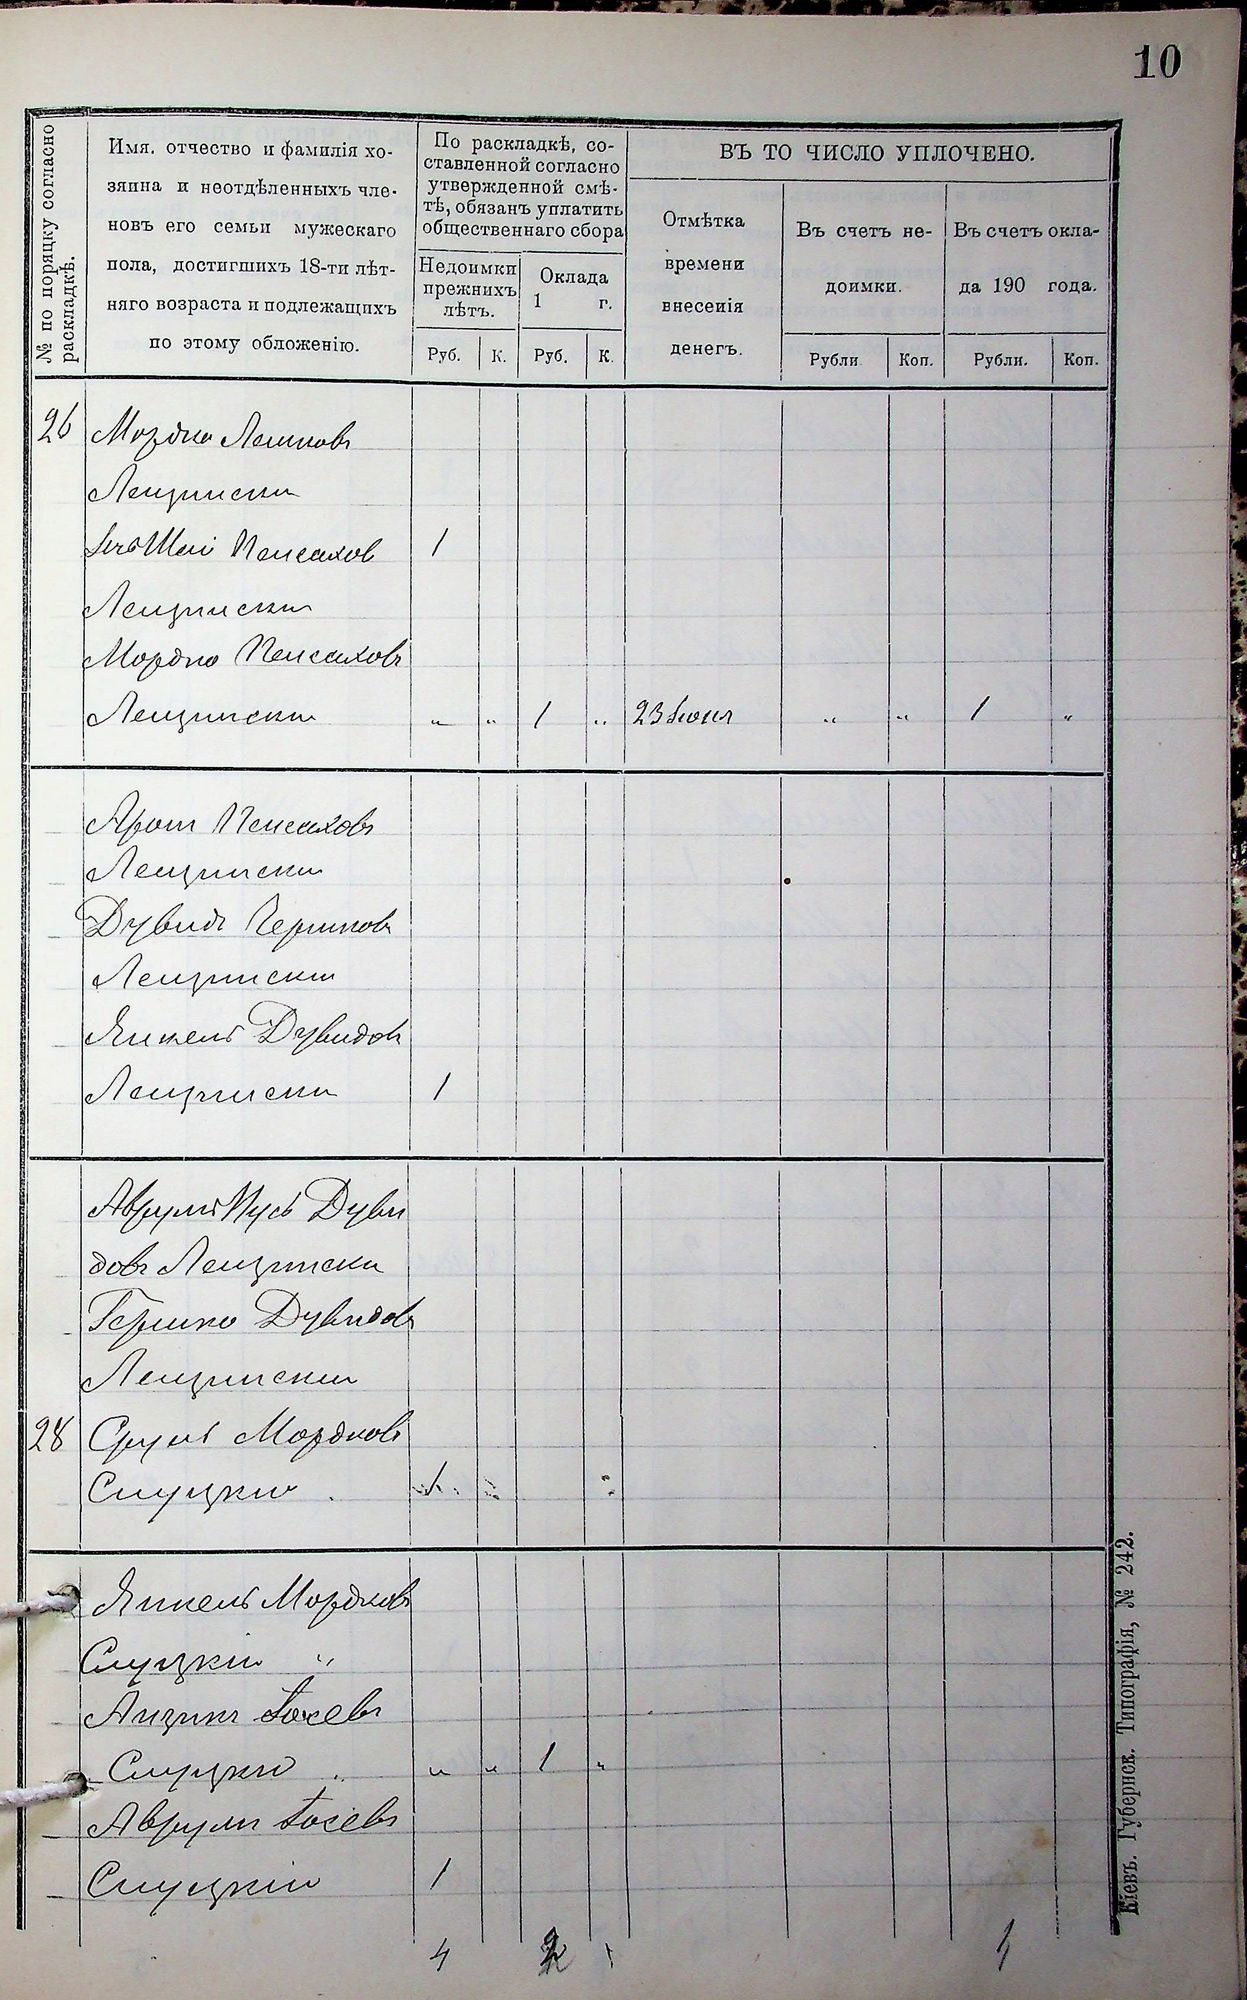 10
№ по поряцку согласно раскладкѣ.
Имя. отчество и фамилія хо-
зяина и неотдѣленныхъ чле-
новъ его семьи мужескаго
пола, достигшихъ 18-ти лѣт-
няго возраста и подлежащихъ
по этому обложенію.
По раскладкѣ, со-
ставленной согласно
утвержденной смѣ-
тѣ, обязанъ уплатить
общественнаго сбора
Недоимки
прежнихъ
лѣтъ.
Оклада
1 г.
Руб. К. Руб. К.
ВЪ ТО ЧИСЛО УПЛОЧЕНО.
Отмѣтка
времени
внесенія
денегъ.
Въ счетъ не-
доимки.
Въ счетъ окла-
да 190 года.
Рубли Коп. Рубли. Коп.
26 Мордко Лешковъ
Лещински
Шаи Пейсахов 1
Лещински
Мордко Пейсаховъ
Лещински " " 1 " 23 Іюня " " 1 "
Арон Пейсаховъ
Лещински
Дувидъ Гершковъ
Лещински
Янкель Дувидовъ
Лещински 1
Аврумъ Нусь Дуви
довъ Лещински
Гершко Дувидовъ
Лещински
28 Сруль Мордковъ
Слуцкій
Янкель Мордковъ
Слуцкій "
Аизикъ Іосевъ
Слуцкій " " 1 "
Аврумъ Іосевъ
Слуцкій 1
4 2 1
Кіевъ. Губернск. Типографія, № 242.